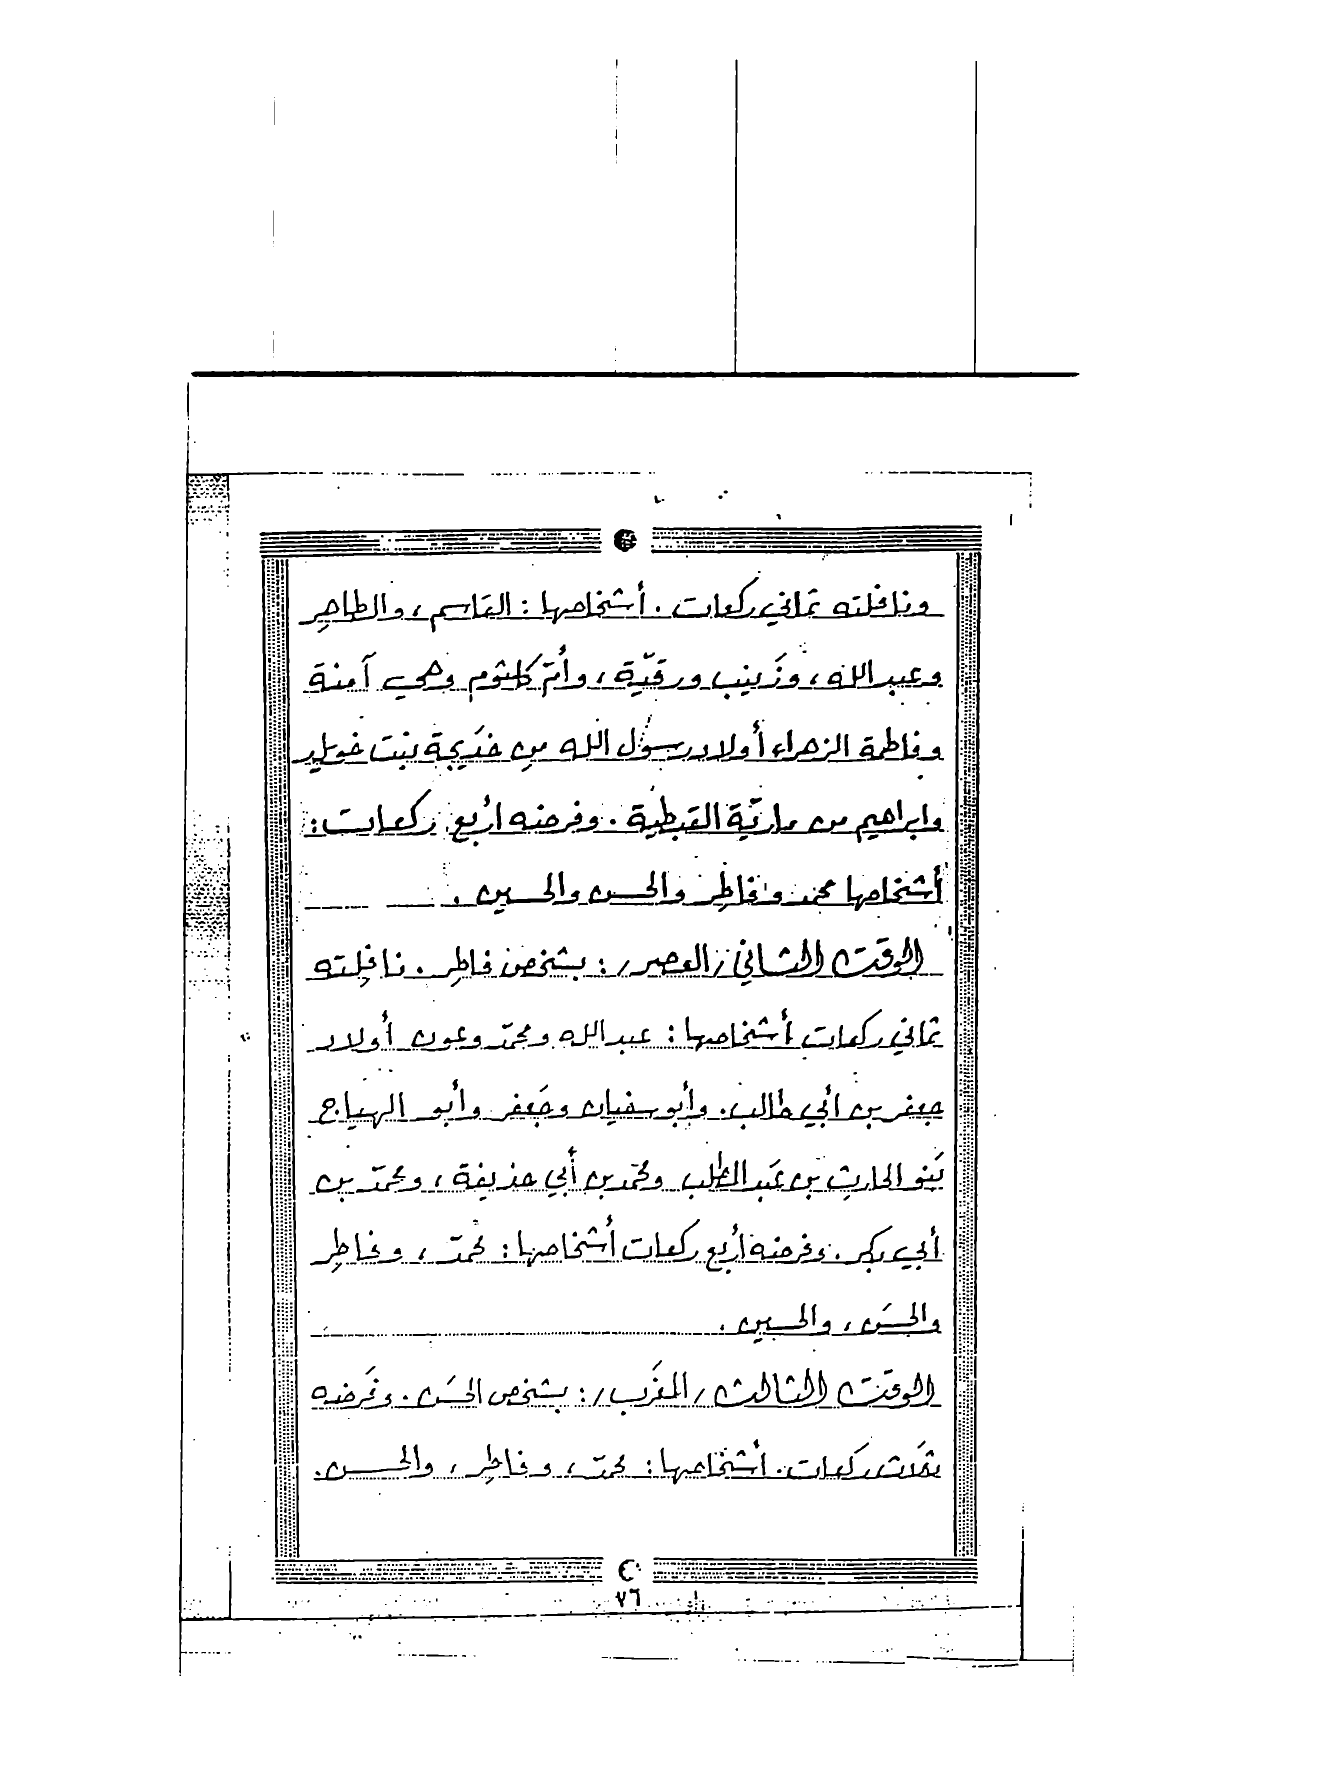 ونافلته ثماني ركعات . أشخاصها : القاسم ، والطاهر
وعبدالله ، وزَينب ورقيّة ، وأمّ كلثوم وهي آمنة
وفاطمة الزهراء أولاد رسول الله من خديجة بنت خويلد
وابراهيم من ماريّة القبطية . وفرضه اربع ركعات :
أشخاصها محمد وفاطِر والحسن والحسين .
الوقت الثاني / العصر / : بشخص فاطِر . نافِلته
ثماني ركعات أشخاصها : عبدالله ومحمّد وعون أولاد
جعفر بن أبي طالب . وأبو سفيان وجَعفر وأبو الهياج
بَنو الحارث بن عَبد المطلب ومحمّد بن أبي حذيفة ، ومحمّد بن
أبي بكر . وفرضه أربع ركعات أشخاصها : محمّد ، وفاطِر
والحسَن ، والحسين .
الوقت الثالث / المغرَب / : بشخص الحسَن . وفَرضه
ثلاث ركعات . أشخاصها : محمّد ، وفاطِر ، والحسن .
٧٦